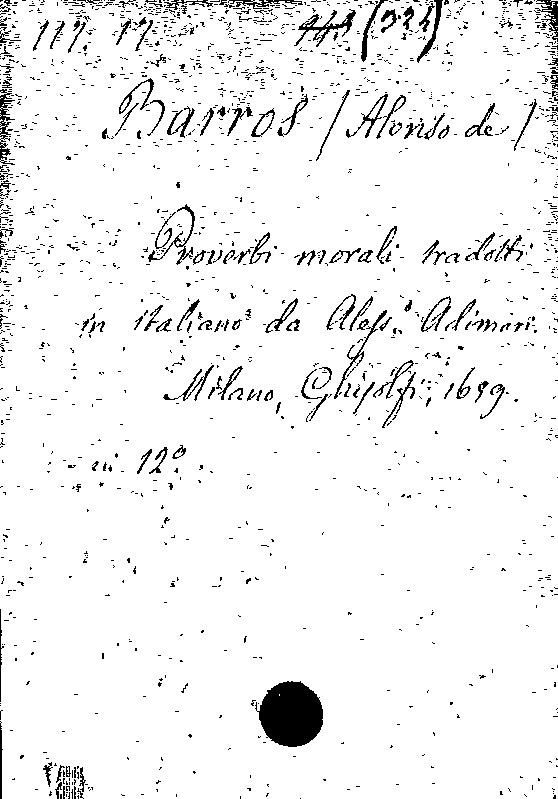 117. 17. (334)
Barros / Alonso de /
Proverbi morali tradotti
in italiano da Aless.º Adimari.
Milano, Ghisolfi, 1659.
in 12º.